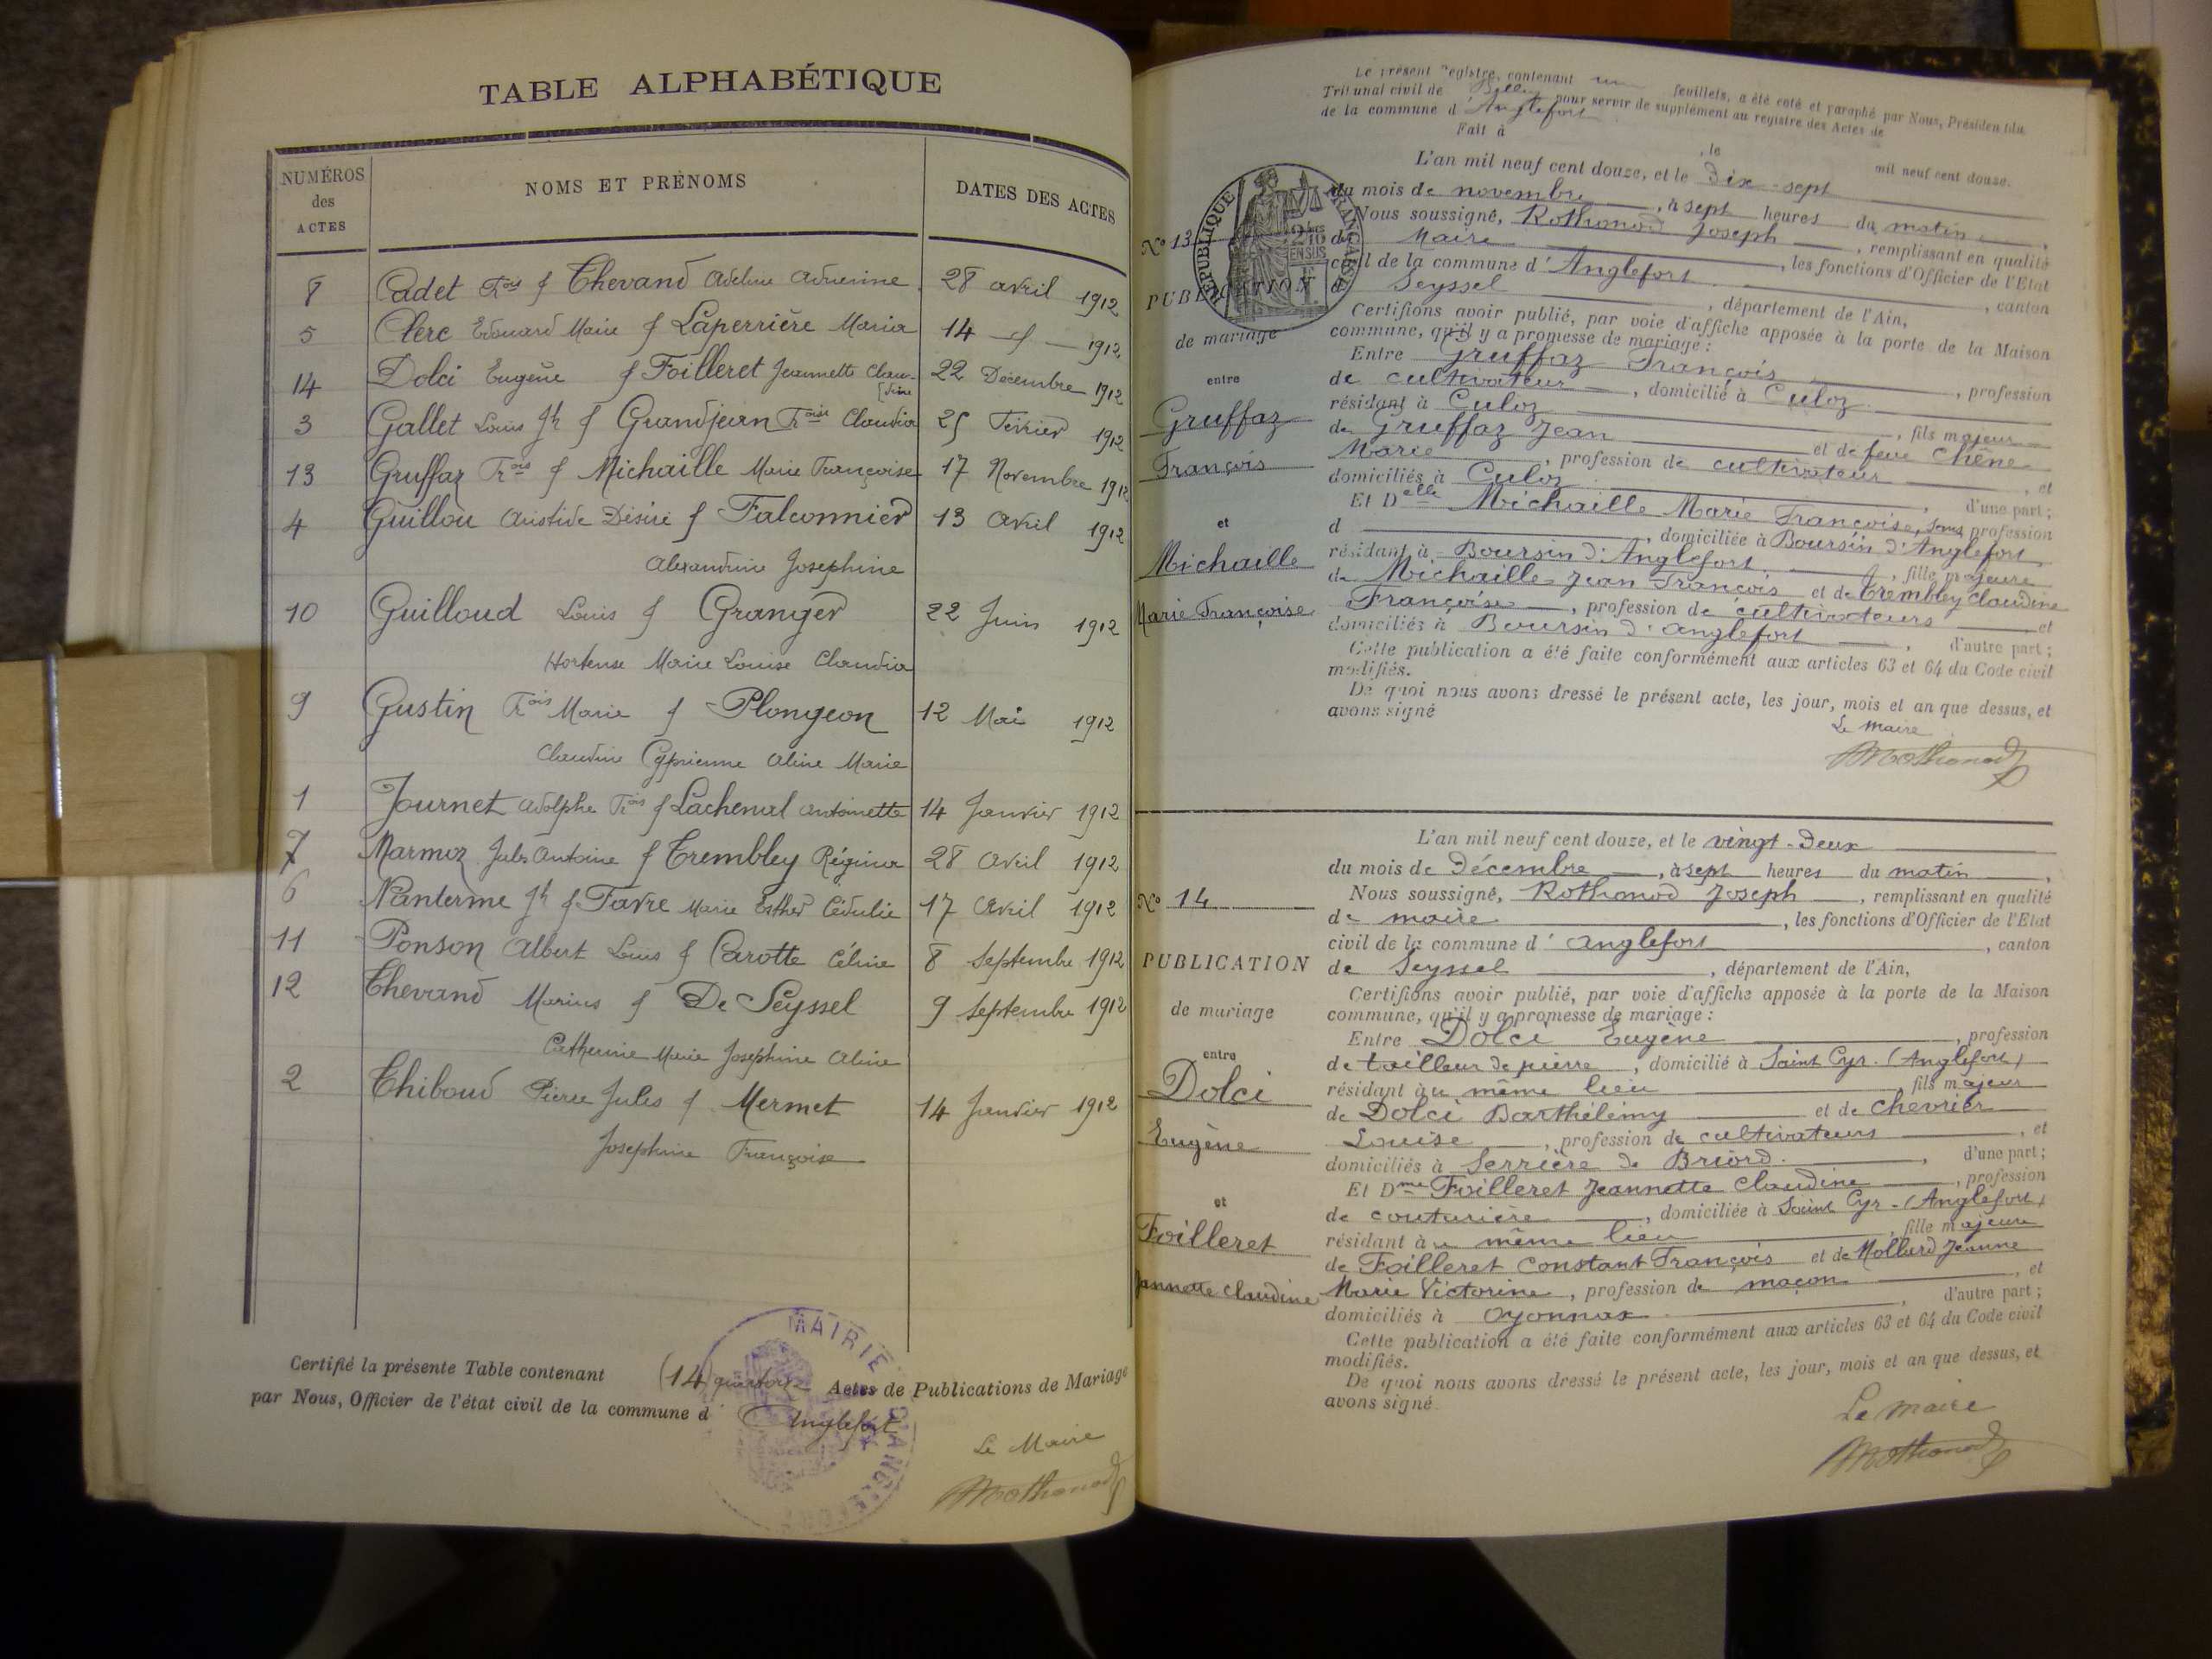 TABLE ALPHABÉTIQUE
NUMÉROS des ACTES
NOMS ET PRÉNOMS
DATES DES ACTES
8 Cadet Fcois & Thevand Adeline Adrienne 28 avril 1912
5 Clerc Edouard Marie & Laperrière Maria 14 — 1912
14 Dolci Eugène & Foilleret Jeannette Claudine 22 Décembre 1912
3 Gallet Louis Jh & Grandjean Fcoise Claudia 25 Février 1912
13 Gruffaz Fcois & Michaille Marie Françoise 17 Novembre 1912
4 Guillou Aristide Désiré & Falconnier 13 Avril 1912
Alexandrine Josephine
10 Guilloud Louis & Granger 22 Juin 1912
Hortense Marie Louise Claudia
9 Gustin Fcois Marie & Plongeon 12 Mai 1912
Claudine Cyprienne Aline Marie
1 Journet Adolphe Fcois & Lachenal Antoinette 14 Janvier 1912
7 Marmoz Jules Antoine & Trembley Régina 28 Avril 1912
6 Nanterme Jh & Favre Marie Esther Cédulie 17 Avril 1912
11 Ponson Albert Louis & Carotte Céline 8 Septembre 1912
12 Thevand Marius & De Seyssel 9 Septembre 1912
Catherine Marie Josephine Aline
2 Thiboud Pierre Jules & Mermet 14 Janvier 1912
Josephine Françoise
Certifié la présente Table contenant (14) quatorze Actes de Publications de Mariage
par Nous, Officier de l'état civil de la commune d' Anglefort
Le Maire
Rothonod
MAIRIE D'ANGLEFORT
Le présent registre, contenant un feuillets, a été coté et paraphé par Nous, Président du
Tribunal civil de Belley pour servir de supplément au registre des Actes de
de la commune d'Anglefort
Fait à , le mil neuf cent douze.
RÉPUBLIQUE FRANÇAISE
L'an mil neuf cent douze, et le Dix-sept
du mois de novembre, à sept heures du matin,
Nous soussigné, Rothonod Joseph, remplissant en qualité
de Maire, les fonctions d'Officier de l'Etat
civil de la commune d'Anglefort, canton
de Seyssel, département de l'Ain,
Certifions avoir publié, par voie d'affiche apposée à la porte de la Maison
commune, qu'il y a promesse de mariage :
Entre Gruffaz François, profession
de cultivateur, domicilié à Culoz
résidant à Culoz, fils majeur
de Gruffaz Jean et de feue Chêne
Marie, profession de cultivateur, et
domiciliés à Culoz, d'une part ;
Et Delle Michaille Marie Françoise, sans profession
d , domiciliée à Boursin d'Anglefort
résidant à Boursin d'Anglefort, fille majeure
de Michaille Jean François et de Trembley Claudine
Françoise, profession de cultivateurs et
domiciliés à Boursin d'Anglefort, d'autre part ;
Cette publication a été faite conformément aux articles 63 et 64 du Code civil
modifiés.
De quoi nous avons dressé le présent acte, les jour, mois et an que dessus, et
avons signé
Le Maire
Rothonod
No 13
PUBLICATION
de mariage
entre
Gruffaz
François
et
Michaille
Marie Françoise
L'an mil neuf cent douze, et le vingt-deux
du mois de Décembre, à sept heures du matin,
Nous soussigné, Rothonod Joseph, remplissant en qualité
de maire, les fonctions d'Officier de l'Etat
civil de la commune d'anglefort, canton
de Seyssel, département de l'Ain,
Certifions avoir publié, par voie d'affiche apposée à la porte de la Maison
commune, qu'il y a promesse de mariage :
Entre Dolci Eugène, profession
de tailleur de pierre, domicilié à Saint Cyr. (Anglefort)
résidant au même lieu, fils majeur
de Dolci Barthélémy et de Chevrier
Louise, profession de cultivateurs, et
domiciliés à Serrière de Briord, d'une part ;
Et Dme Foilleret Jeannette Claudine, profession
de couturière, domiciliée à Saint Cyr - (Anglefort)
résidant au même lieu, fille majeure
de Foilleret Constant François et de Mollard Jeanne
Marie Victorine, profession de maçon, et
domiciliés à Oyonnax, d'autre part ;
Cette publication a été faite conformément aux articles 63 et 64 du Code civil
modifiés.
De quoi nous avons dressé le présent acte, les jour, mois et an que dessus, et
avons signé
Le maire
Rothonod
No 14
PUBLICATION
de mariage
entre
Dolci
Eugène
et
Foilleret
Jannette Claudine